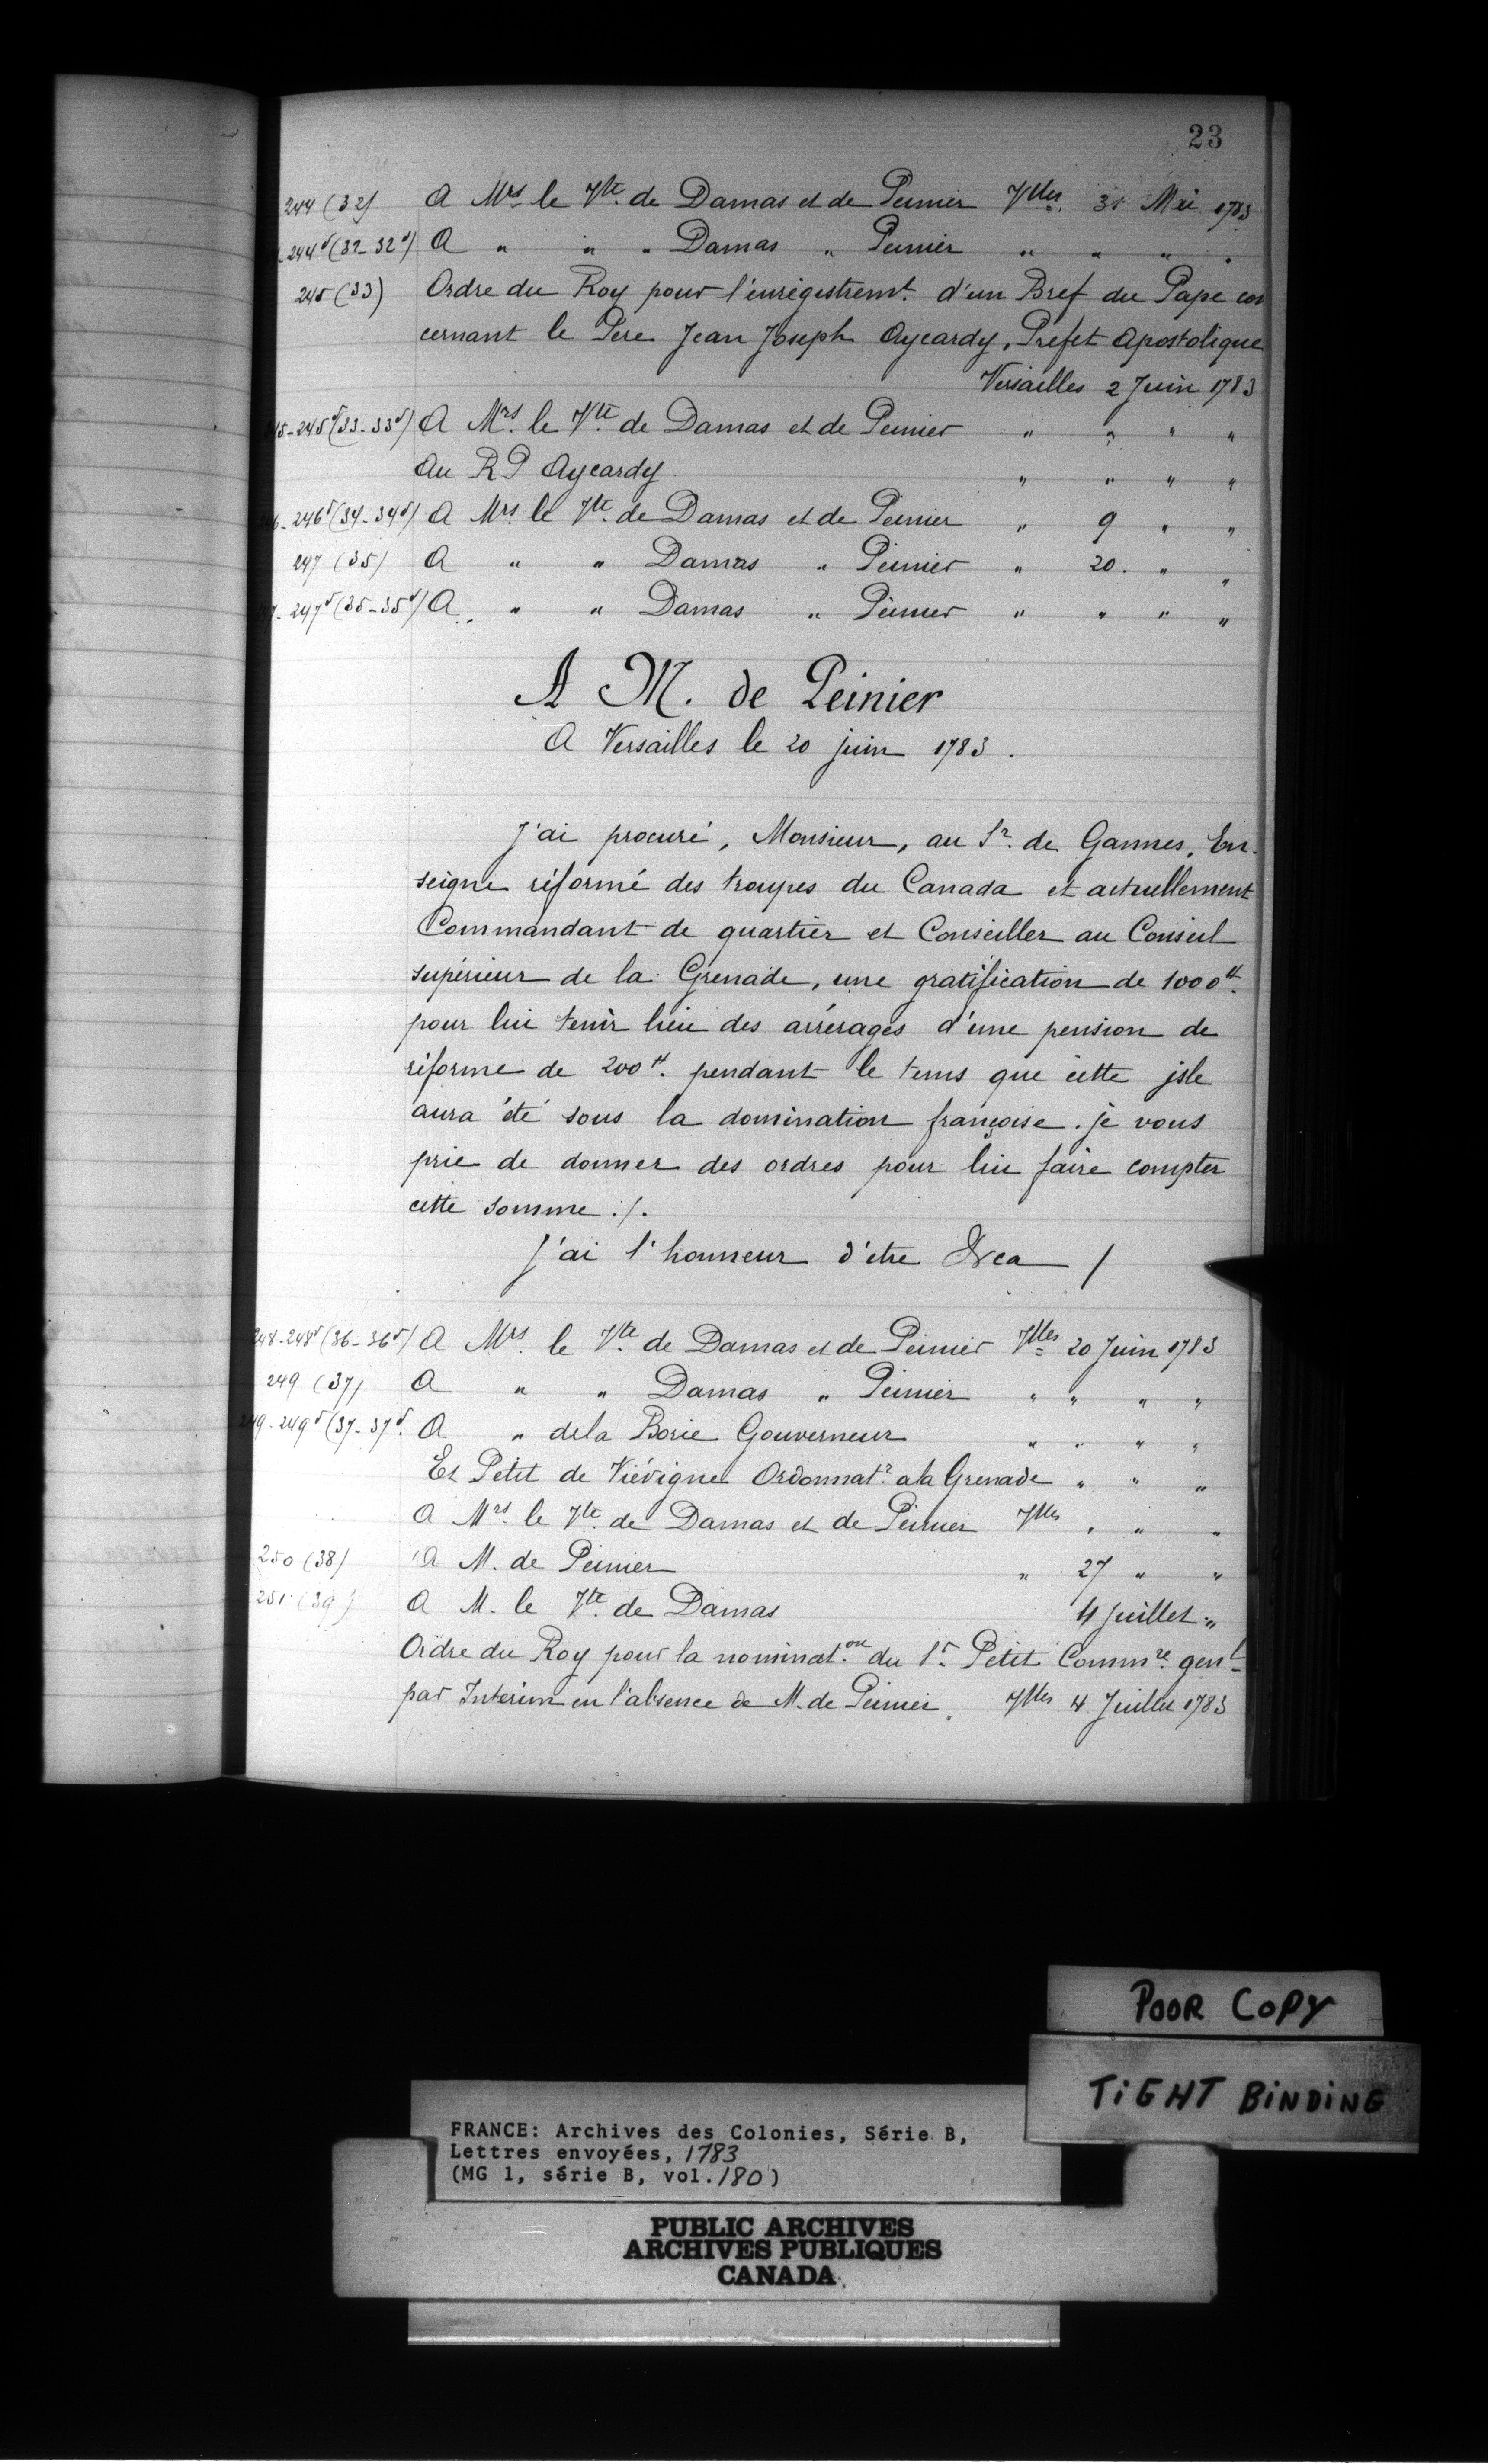 23
244 (32) A Mrs. le Vte. de Damas et de Peinier Vlles. 31 Mai 1783
244v (32-32v) A " " " Damas " Peinier " " " "
245 (33) Ordre du Roy pour l'enregistremt. d'un Bref du Pape con
cernant le Pere Jean Joseph Aycardy, Prefet Apostolique
Versailles 2 Juin 1783
245-245v (33-33v) A Mrs. le Vte. de Damas et de Peinier " " " "
Au R P Aycardy " " " "
246-246v (34-34v) A Mrs. le Vte. de Damas et de Peinier " 9 " "
247 (35) A " " Damas " Peinier " 20. " "
247-247v (35-35v) A " " Damas " Peinier " " " "
A M. de Peinier
A Versailles le 20 juin 1783.
J'ai procuré, Monsieur, au Sr. de Gannes, En-
seigne réformé des troupes du Canada et actuellement
Commandant de quartier et Conseiller au Conseil
supérieur de la Grenade, une gratification de 1000tt.
pour lui tenir lieu des arrérages d'une pension de
réforme de 200tt. pendant le tems que cette isle
aura été sous la domination françoise. je vous
prie de donner des ordres pour lui faire compter
cette somme ./.
J'ai l'honneur d'etre &ca /
248-248v (36-36v) A Mrs. le Vte. de Damas et de Peinier Vlles 20 Juin 1783
249 (37) A " " Damas " Peinier " " " "
249-249v (37-37v. A " dela Borie Gouverneur " " " "
Et Petit de Viévigne Ordonnatr. a la Grenade " " "
A Mrs. le Vte. de Damas et de Peinier Vlles " " "
250 (38) A M. de Peinier " 27 " "
251 (39) A M. le Vte. de Damas 4 Juillet "
Ordre du Roy pour la nominat.on du Sr. Petit Commre. genl
par Interim en l'absence de M. de Peinier. Vlles 4 Juillet 1783
POOR COPY
TIGHT BINDING
FRANCE: Archives des Colonies, Série B,
Lettres envoyées, 1783
(MG 1, série B, vol. 180)
PUBLIC ARCHIVES
ARCHIVES PUBLIQUES
CANADA